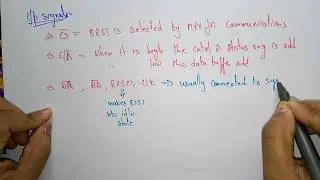 i/p signals
⇒ CS = 8251 is selected by MPU for communications
⇒ C/D = When it is high the control & status reg is add
" low the data buffer add
⇒ WR, RD, RESET, CLK ⇒ usually connected to sys
⇓
makes 8251
into idle
state